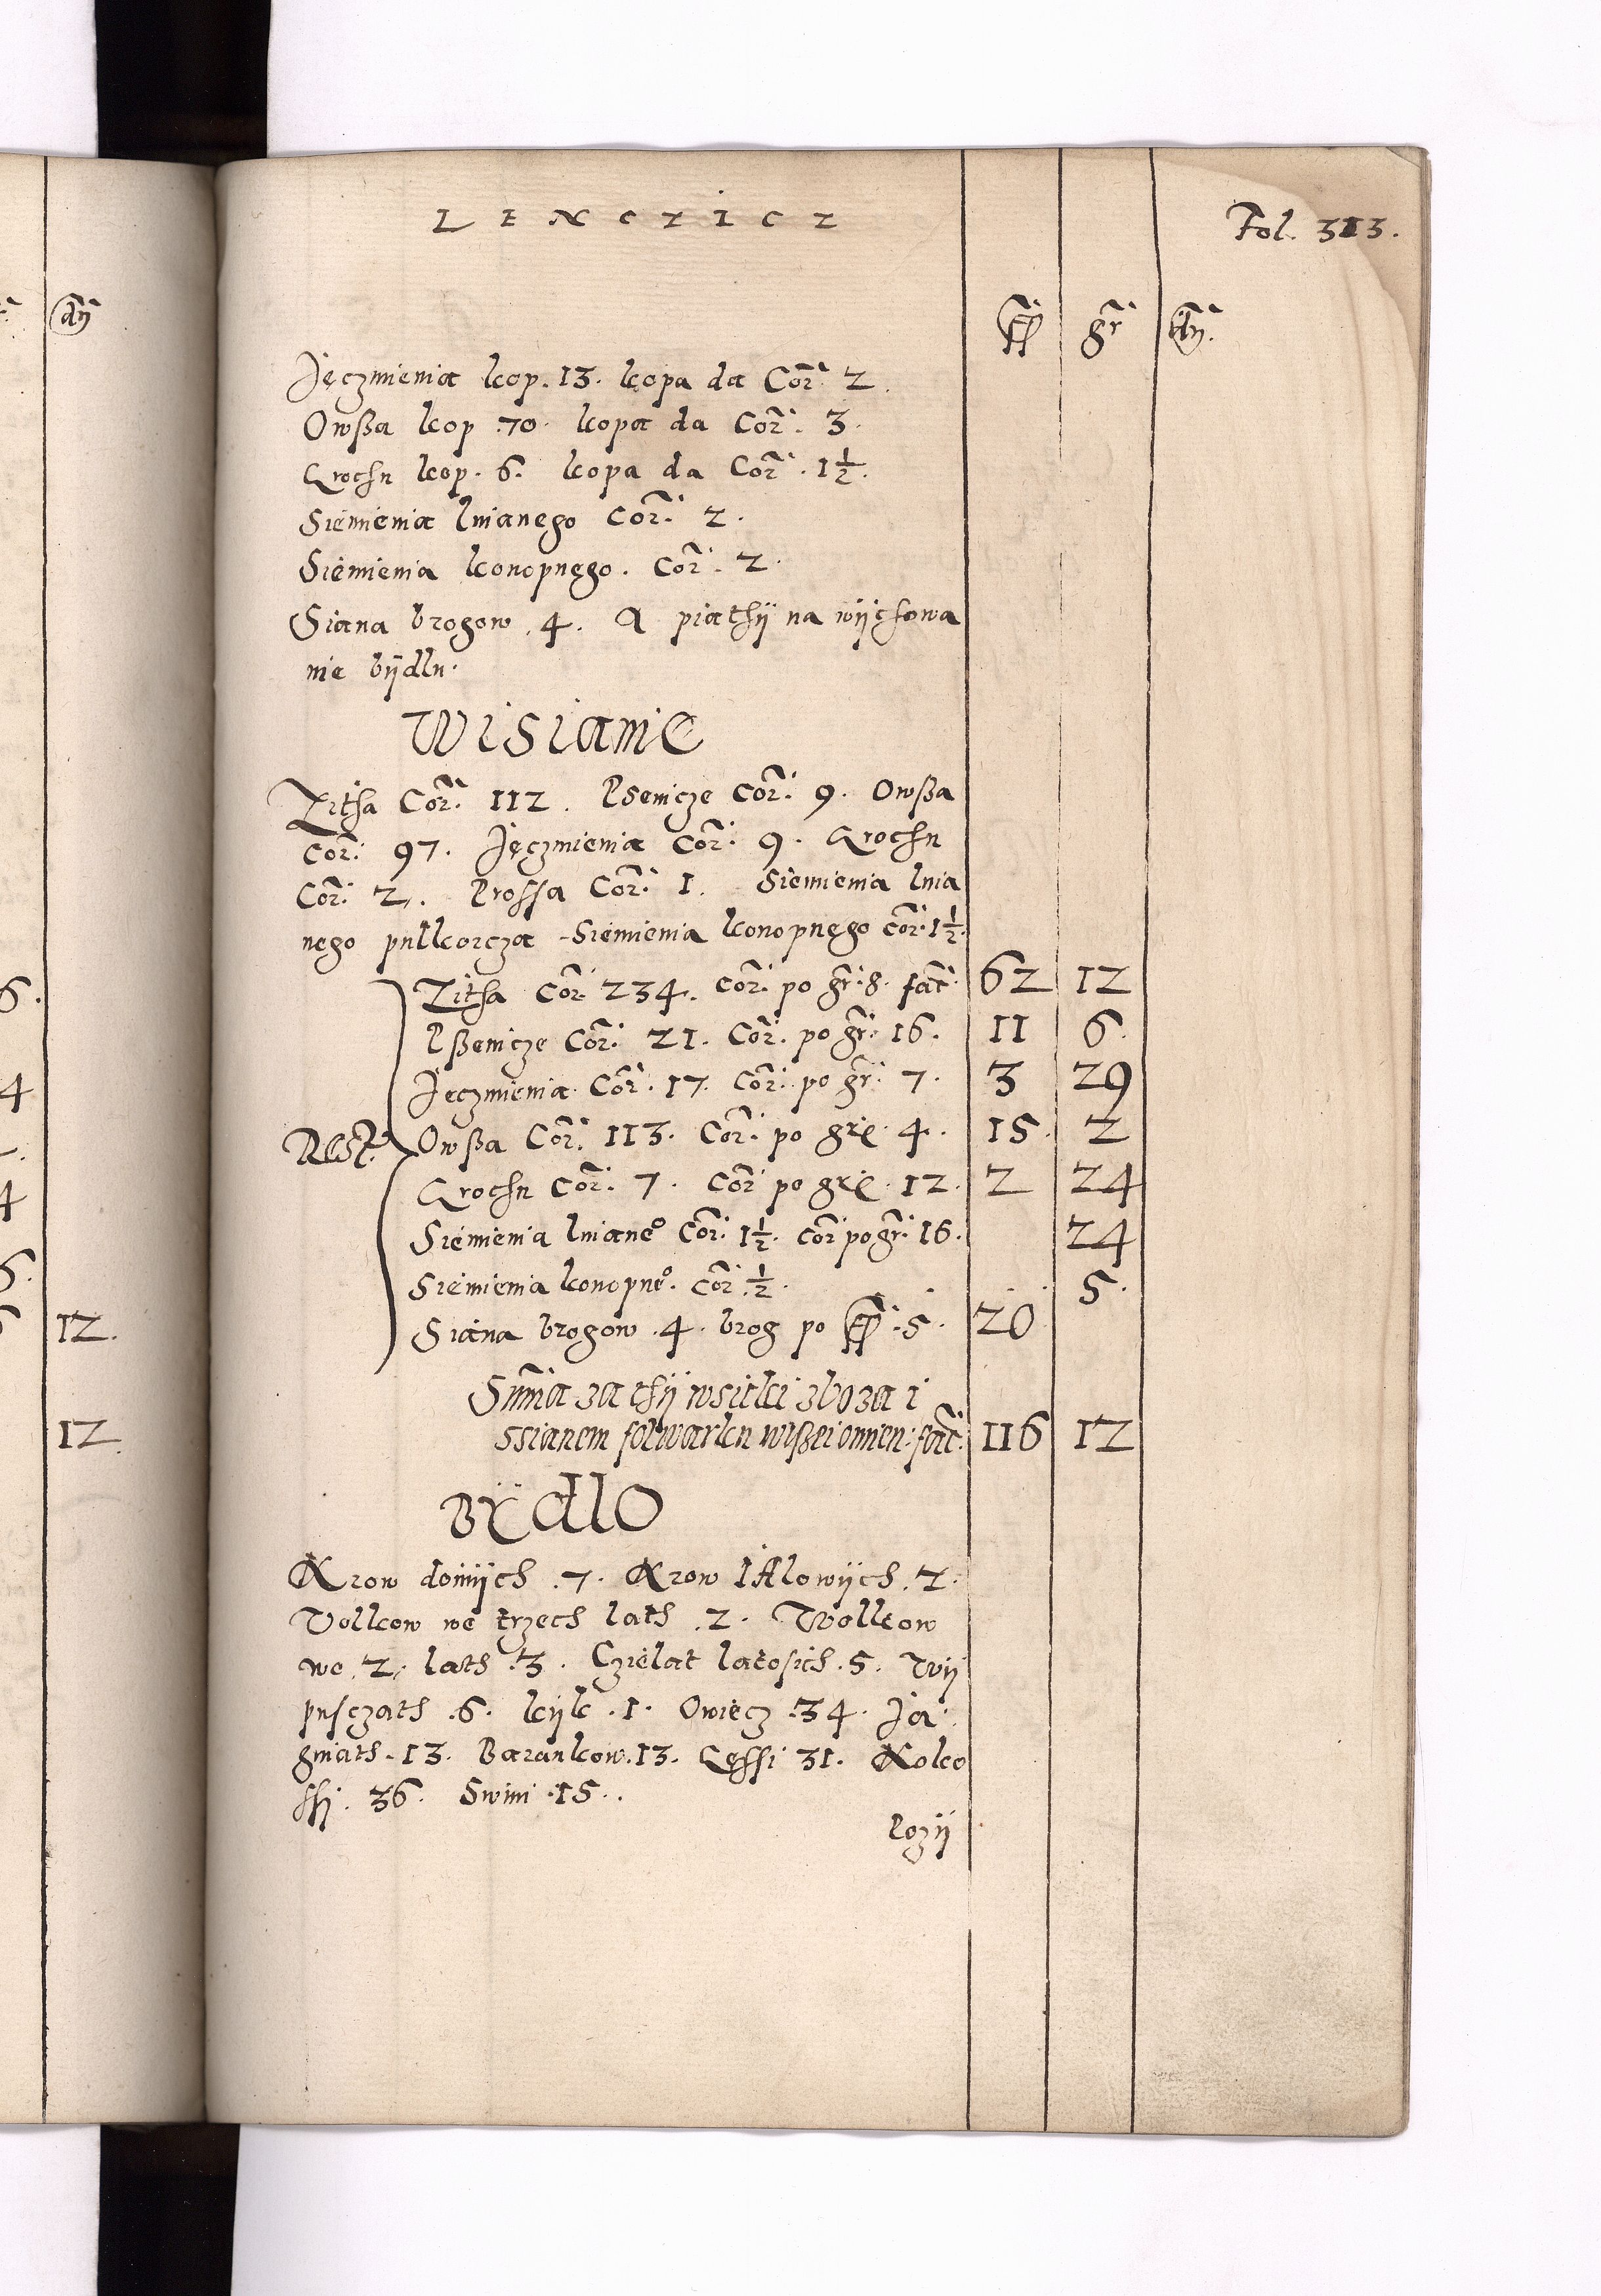 LENCZICZ
Fol. 313.
fl gr dn.
Jęczmienia kop. 13. kopa da Cor. 2.
Owßa kop 70. kopa da Cor. 3.
Grochu kop. 6. kopa da Cor. 1½.
Siemienia lnianego Cor. 2.
Siemienia konopnego. Cor. 2.
Siana brogow .4. A piathÿ na wÿchowa
nie bÿdlu.
WiSianie
Zitha Cor. 112. Psenicze Cor. 9. Owßa
Cor. 97. Jęczmienia Cor. 9. Grochu
Cor. 2. Prossa Cor. 1. Siemienia lnia
nego pulkorcza - Siemienia konopnego Cor. 1½.
Zitha Cor. 234. Cor. po gr. 8. fac. 62 12
Pßenicze Cor. 21. Cor. po gr. 16. 11 6.
Jęczmienia Cor. 17. Cor. po gr. 7. 3 29
Rest. Owßa Cor. 113. Cor. po gr. 4. 15. 2
Grochu Cor. 7. Cor po gr. 12. 2 24
Siemienia lniane° Cor. 1½. Cor po gr. 16. 24
Siemienia konopne°. Cor. ½. 5.
Siana brogow .4. brog po fl .5. 20
Summa za thÿ wsitki zboza i
ssianem folwarku wißei omien: fac. 116 12
BŸdlO
Krow doinÿch .7. Krow iAlowÿch .2.
Volkow we trzech lath .2. Wolkow
we .2. lath .3. Czielat latosich .5. Wÿ
pusczath .6. kÿk .1. Owiecz .34. Ja
gniath .13. Barankow .13. Gęssi 31. Koko
ssÿ. 36. Swini .15..
Pozÿ
dn
6.
4
4
6.
12.
12.